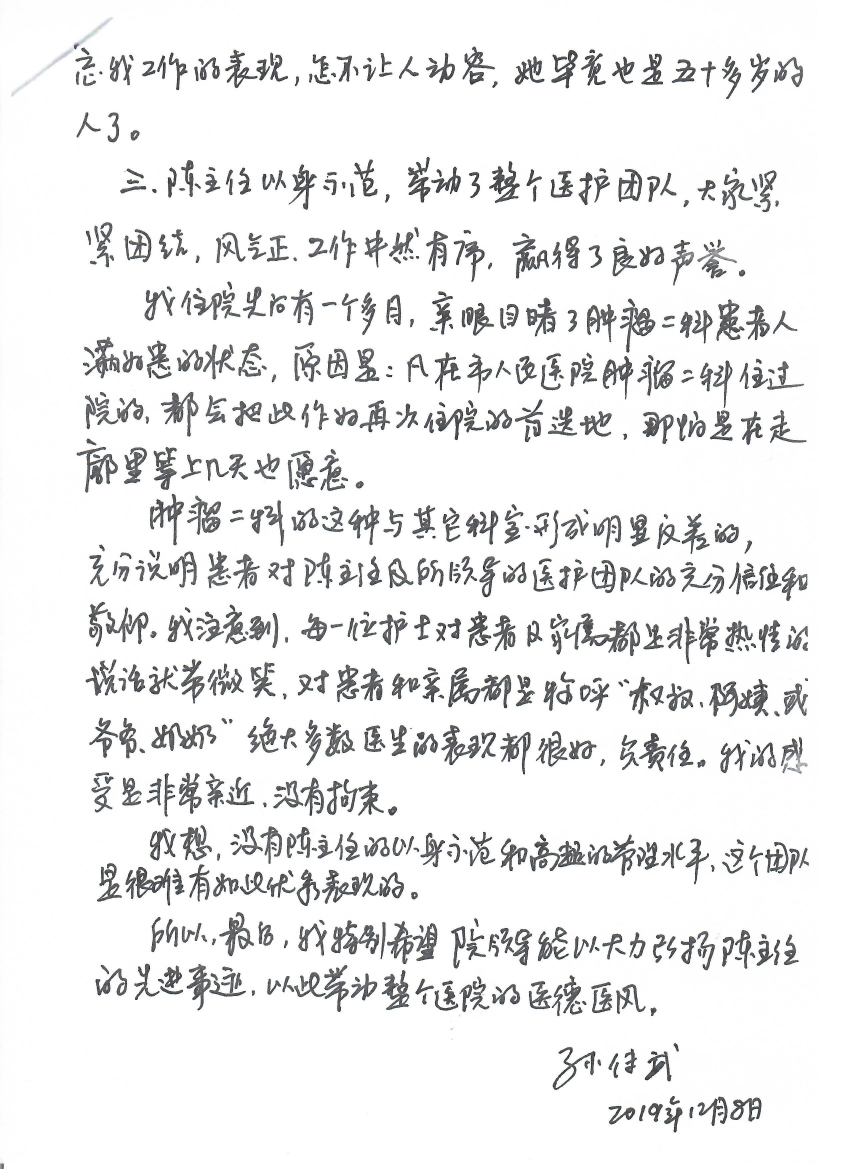 忘我工作的表现，怎不让人动容，她毕竟也是五十多岁的
人了。
三.陈主任以身示范，带动了整个医护团队，大家紧
紧团结，风气正.工作井然有序，赢得了良好声誉。
我住院先后有一个多月，亲眼目睹了肿瘤二科患者人
满为患的状态，原因是：凡在市人民医院肿瘤二科住过
院的，都会把此作为再次住院的首选地，那怕是在走
廊里等上几天也愿意。
肿瘤二科的这种与其它科室形成明显反差的，
充分说明患者对陈主任及所领导的医护团队的充分信任和
敬仰。我注意到，每一位护士对患者及家属都是非常热情的
说话就带微笑，对患者和亲属都是称呼“叔叔、阿姨、或
爷爷、奶奶”绝大多数医生的表现都很好，负责任。我的感
受是非常亲近，没有拘束。
我想，没有陈主任的以身示范和高超的管理水平，这个团队
是很难有如此优秀表现的。
所以，最后，我特别希望院领导能以大力弘扬陈主任
的先进事迹，以此带动整个医院的医德医风。
孙 武
2019年12月8日